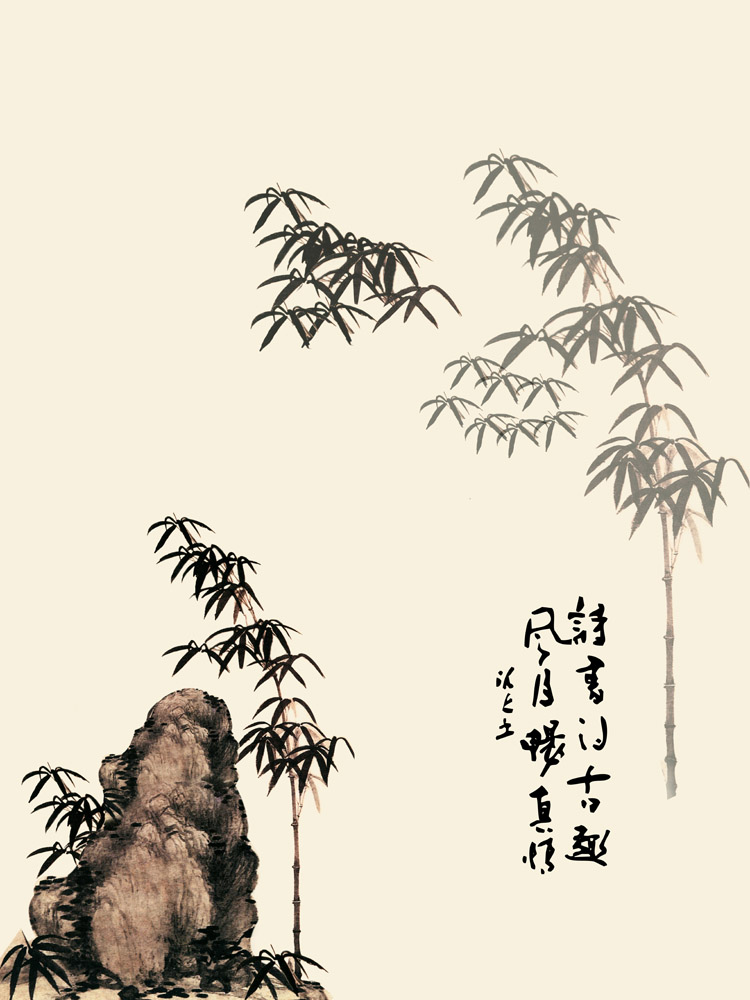 詩書得古趣
風月暢真情